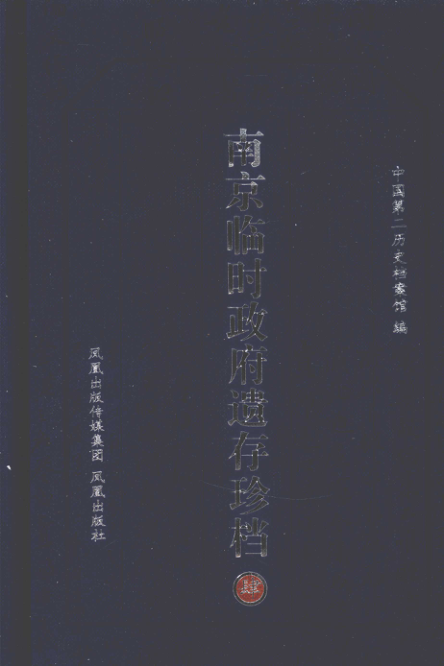 中国第二历史档案馆 编
南京临时政府遗存珍档
凤凰出版传媒集团 凤凰出版社